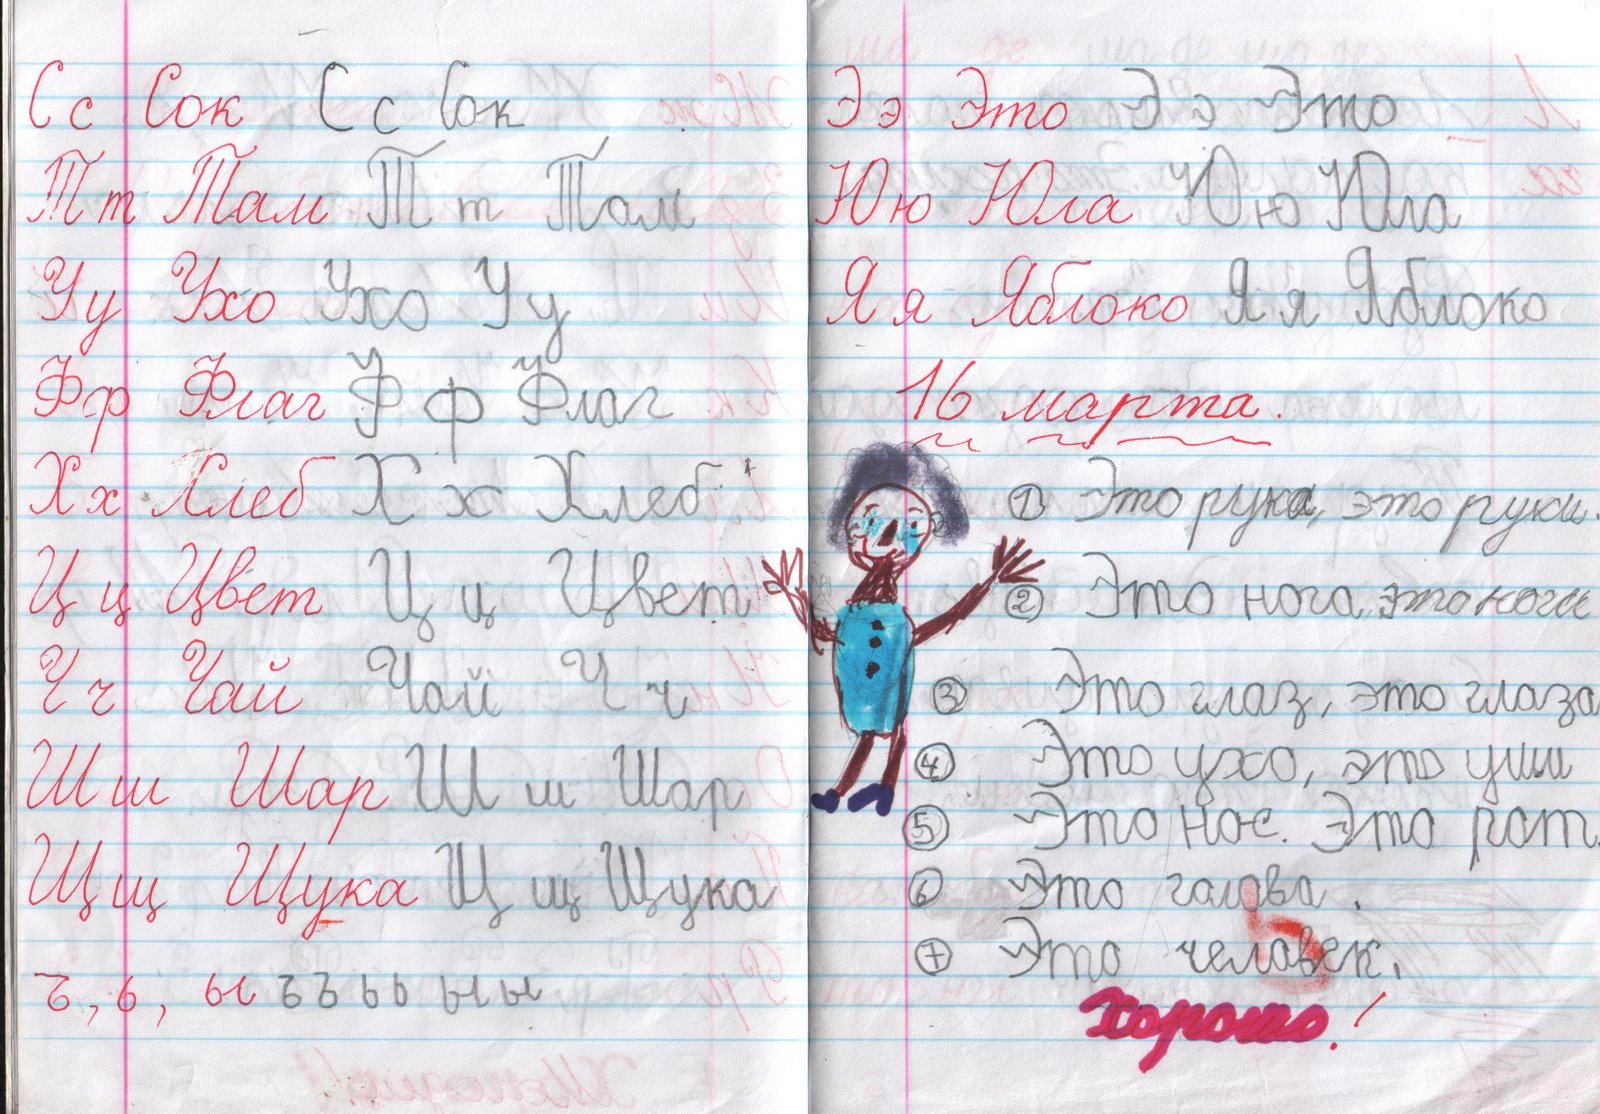 Сс Сок Сс Сок
Тт Там Тт Там
Уу Ухо Ухо Уу
Фф Флаг Фф Флаг
Хх Хлеб Хх Хлеб
Цц Цвет Цц Цвет
Чч Чай Чай Чч
Шш Шар Шш Шар
Щщ Щука Щщ Щука
ъ, ь, ы ъъ ьь ыы
Ээ Это Ээ Это
Юю Юла Юю Юла
Яя Яблоко Яя Яблоко
16 марта.
1 Это рука, это руки.
2 Это нога, это ноги
3 Это глаз, это глаза
4 Это ухо, это уши
5 Это нос. Это рот.
6 Это голова.
7 Это человек.
Хорошо!